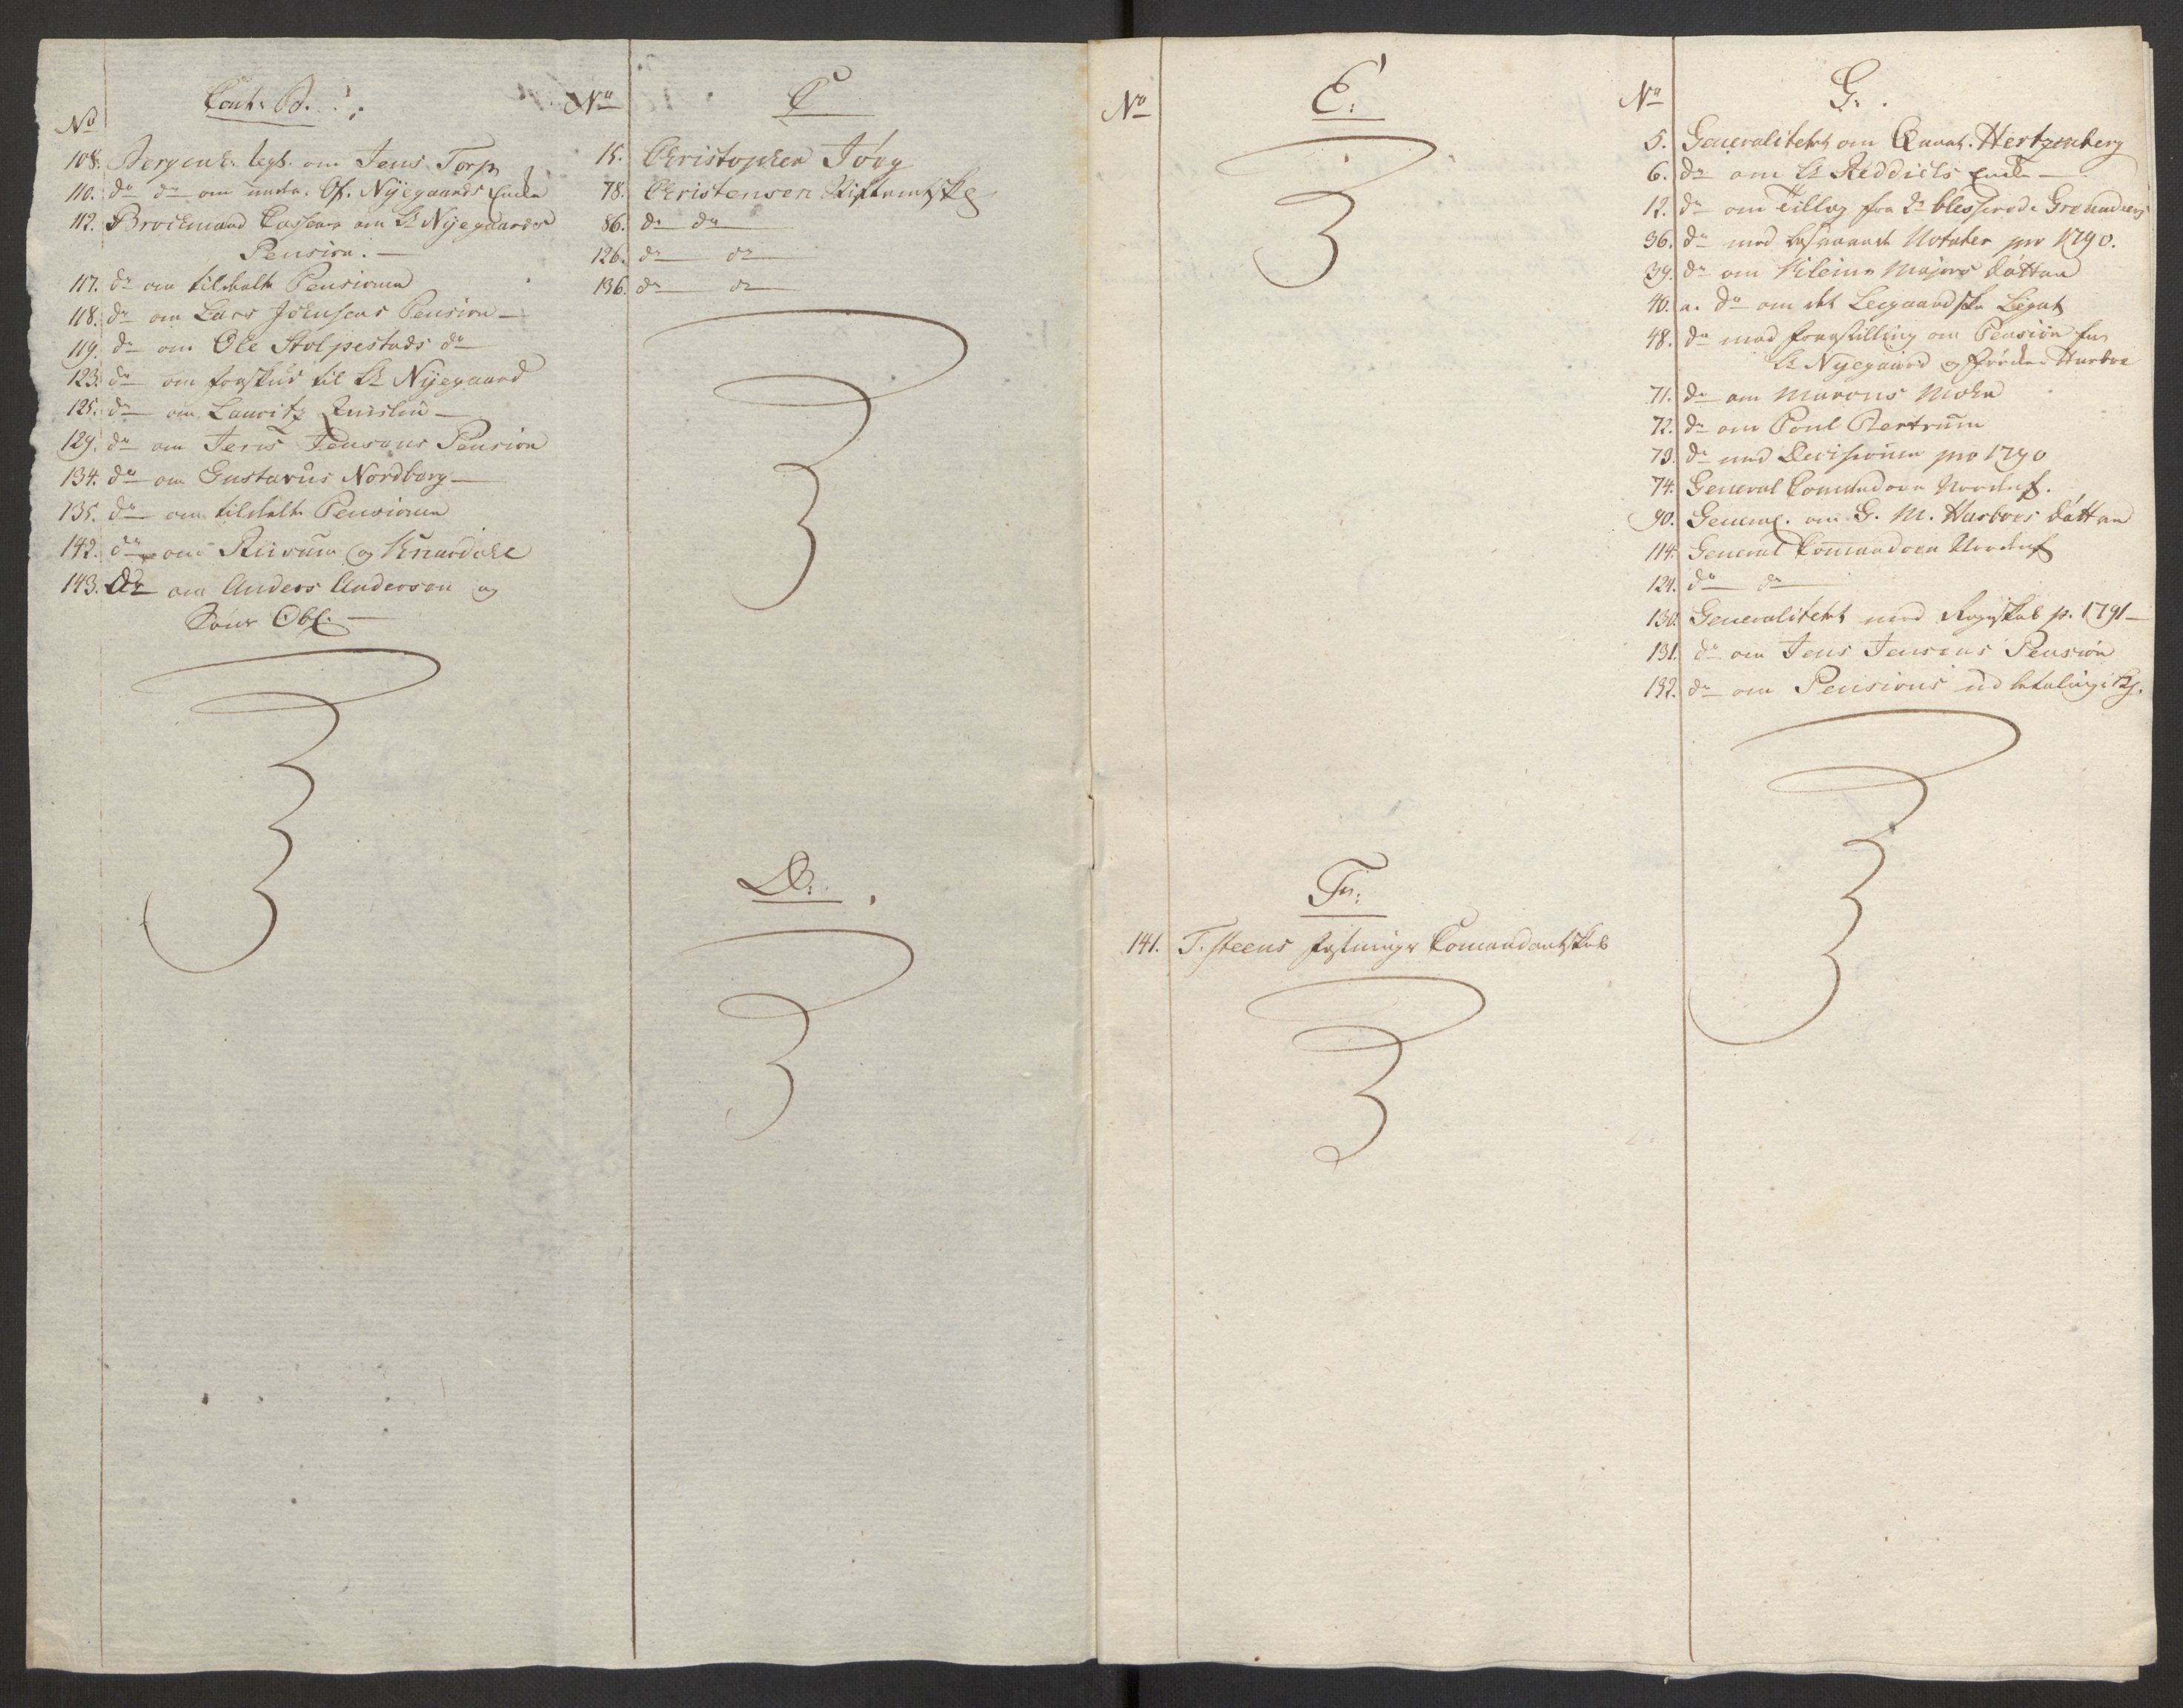 Cont. B.
No
108. Bergenh. regt. om Jens Torp
110. do do om under Of. Nyegaards Encke
112. Brockmand Casserer om Lt Nyegaards
Pension. —
117. do om tildeelte Pensioner
118. do om Lars Johnsens Pension —
119. do om Ole Stolpestads do
123. do om forskud til Lt Nyegaard
125. do om Lauritz —
129. do om Jens Jensens Pension
134. do om Gustavus Nordborg —
135. do om tildelte Pensioner
142. do om og
143. do om Anders Anderson og
Sons Obl. —
No
C
15. Christopher Torg
78. Christensen
86. do do
126. do do
136. do do
D.
No
E.
F.
141. F. steens festnings Comandantskab
No
G.
5. Generalitetet om Qvart. Hertzenberg
6. do om Lt Reddiets Encke —
12. do om Tillæg for do blesserede Grenaderer
36. do med besvarede Notater pro 1790.
39. do om Kleins Majors døttre
40. a. do om det Leegaardske Legat
48. do med forestilling om Pension for
Lt Nyegaard og frøken Harboe
71. do om Marens Mohr
72. do om Poul Bertrum
73. do med Decisioner pro 1790
74. General Comandoen Nordenf.
90. General. om G. M. Harboes døttre
114. General Comandoen Nordenf
124. do do
130. Generalitetet med Regnskab p. 1791 —
131. do om Jens Jensens Pension
132. do om Pensions udbetaling i